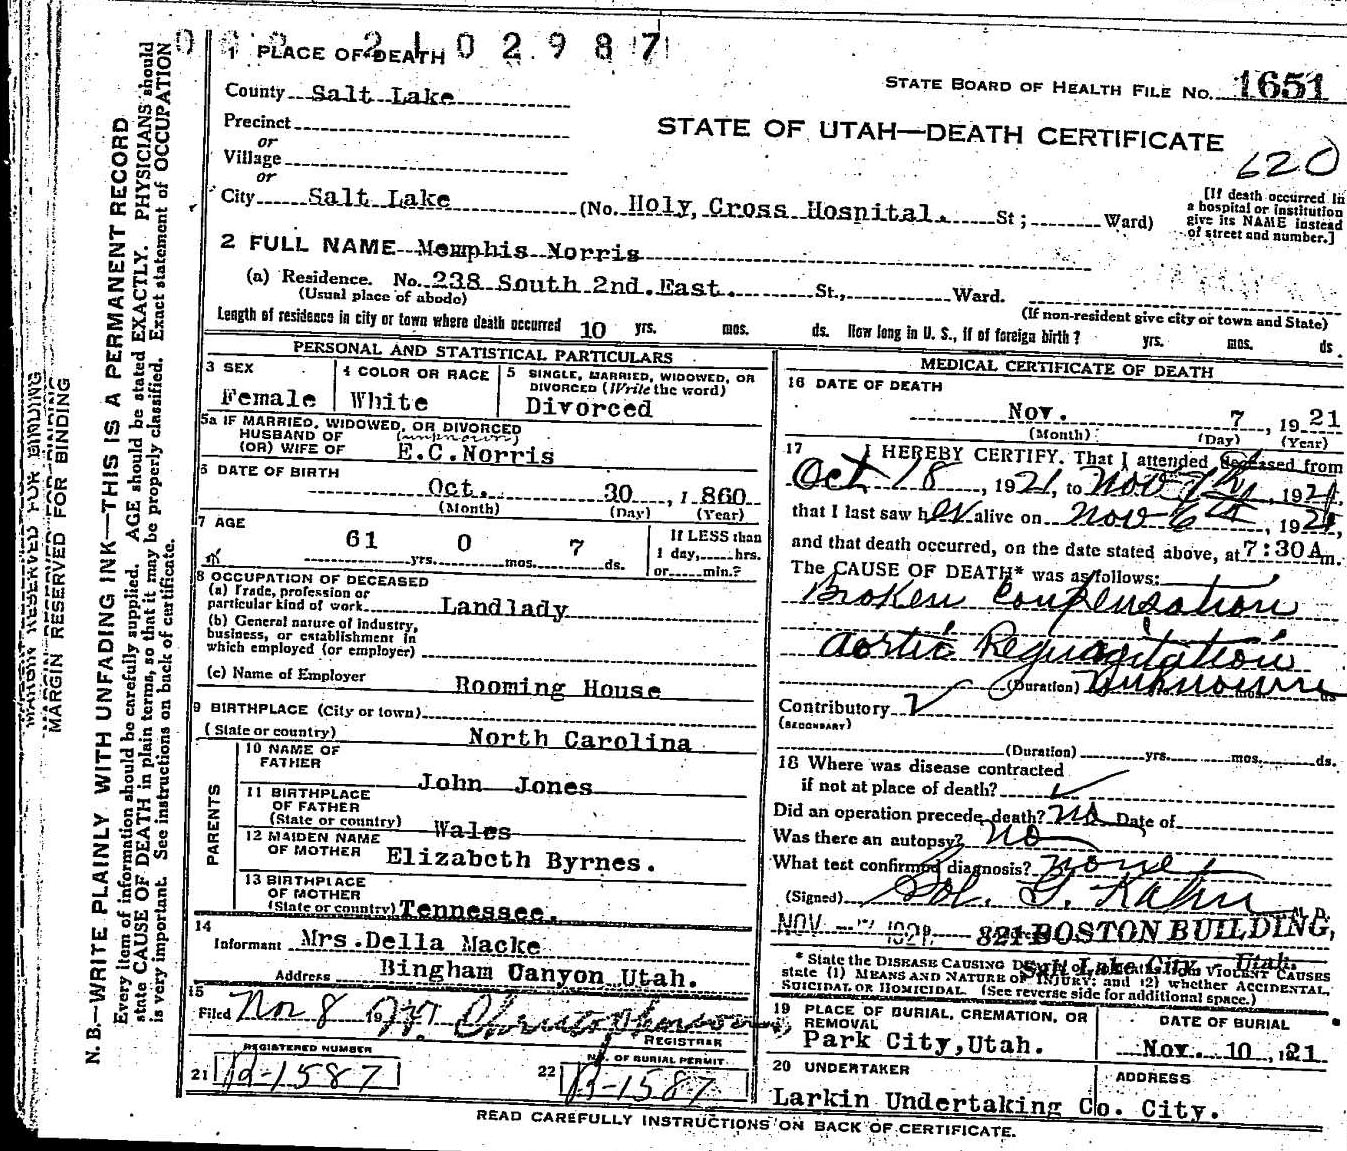 2102987
1 PLACE OF DEATH
STATE BOARD OF HEALTH FILE No. 1651
County Salt Lake
Precinct
or
Village
or
STATE OF UTAH—DEATH CERTIFICATE
620
City Salt Lake (No. Holy Cross Hospital. St; Ward)
[If death occurred in
a hospital or institution
give its NAME instead
of street and number.]
2 FULL NAME Memphis Norris
(a) Residence. No. 238 South 2nd. East. St., Ward.
(Usual place of abode)
(If non-resident give city or town and State)
Length of residence in city or town where death occurred 10 yrs. mos. ds. How long in U. S., if of foreign birth? yrs. mos. ds.
PERSONAL AND STATISTICAL PARTICULARS
3 SEX
Female
4 COLOR OR RACE
White
5 SINGLE, MARRIED, WIDOWED, OR
DIVORCED (Write the word)
Divorced
5a IF MARRIED, WIDOWED, OR DIVORCED
HUSBAND OF (unknown)
(OR) WIFE OF E.C.Norris
6 DATE OF BIRTH
Oct. 30, 1860
(Month) (Day) (Year)
7 AGE
61 yrs. 0 mos. 7 ds.
If LESS than
1 day, hrs.
or min.?
8 OCCUPATION OF DECEASED
(a) Trade, profession or
particular kind of work Landlady
(b) General nature of industry,
business, or establishment in
which employed (or employer)
(c) Name of Employer Rooming House
9 BIRTHPLACE (City or town)
(State or country) North Carolina
PARENTS
10 NAME OF
FATHER John Jones
11 BIRTHPLACE
OF FATHER
(State or country) Wales
12 MAIDEN NAME
OF MOTHER Elizabeth Byrnes.
13 BIRTHPLACE
OF MOTHER
(State or country) Tennessee.
14
Informant Mrs.Della Macke
Address Bingham Canyon Utah.
15
Filed Nov 8 19
REGISTRAR
REGISTERED NUMBER
21 B-1587
No. OF BURIAL PERMIT
22 B-1587
MEDICAL CERTIFICATE OF DEATH
16 DATE OF DEATH
Nov. 7, 1921
(Month) (Day) (Year)
17 I HEREBY CERTIFY, That I attended deceased from
Oct 18, 1921, to Nov 7th, 1921,
that I last saw her alive on Nov 6th, 1921,
and that death occurred, on the date stated above, at 7:30A m.
The CAUSE OF DEATH* was as follows:
Broken Compensation
Aortic Regurgitation
(Duration) Unknown ds
Contributory
(SECONDARY)
(Duration) yrs. mos. ds.
18 Where was disease contracted
if not at place of death?
Did an operation precede death? no Date of
Was there an autopsy? no
What test confirmed diagnosis? none
(Signed) Sol. G. Kahn M.D.
NOV 1921 821 BOSTON BUILDING,
Salt Lake City - Utah.
* State the DISEASE CAUSING DEATH, or, in deaths from VIOLENT CAUSES
state (1) MEANS AND NATURE OF INJURY; and (2) whether ACCIDENTAL,
SUICIDAL OR HOMICIDAL. (See reverse side for additional space.)
19 PLACE OF BURIAL, CREMATION, OR
REMOVAL
Park City,Utah.
DATE OF BURIAL
Nov. 10, 1921
20 UNDERTAKER
Larkin Undertaking Co. City.
ADDRESS
READ CAREFULLY INSTRUCTIONS ON BACK OF CERTIFICATE.
MARGIN RESERVED FOR BINDING
MARGIN RESERVED FOR BINDING
N. B.—WRITE PLAINLY WITH UNFADING INK—THIS IS A PERMANENT RECORD
Every item of information should be carefully supplied. AGE should be stated EXACTLY. PHYSICIANS should
state CAUSE OF DEATH in plain terms, so that it may be properly classified. Exact statement of OCCUPATION
is very important. See instructions on back of certificate.